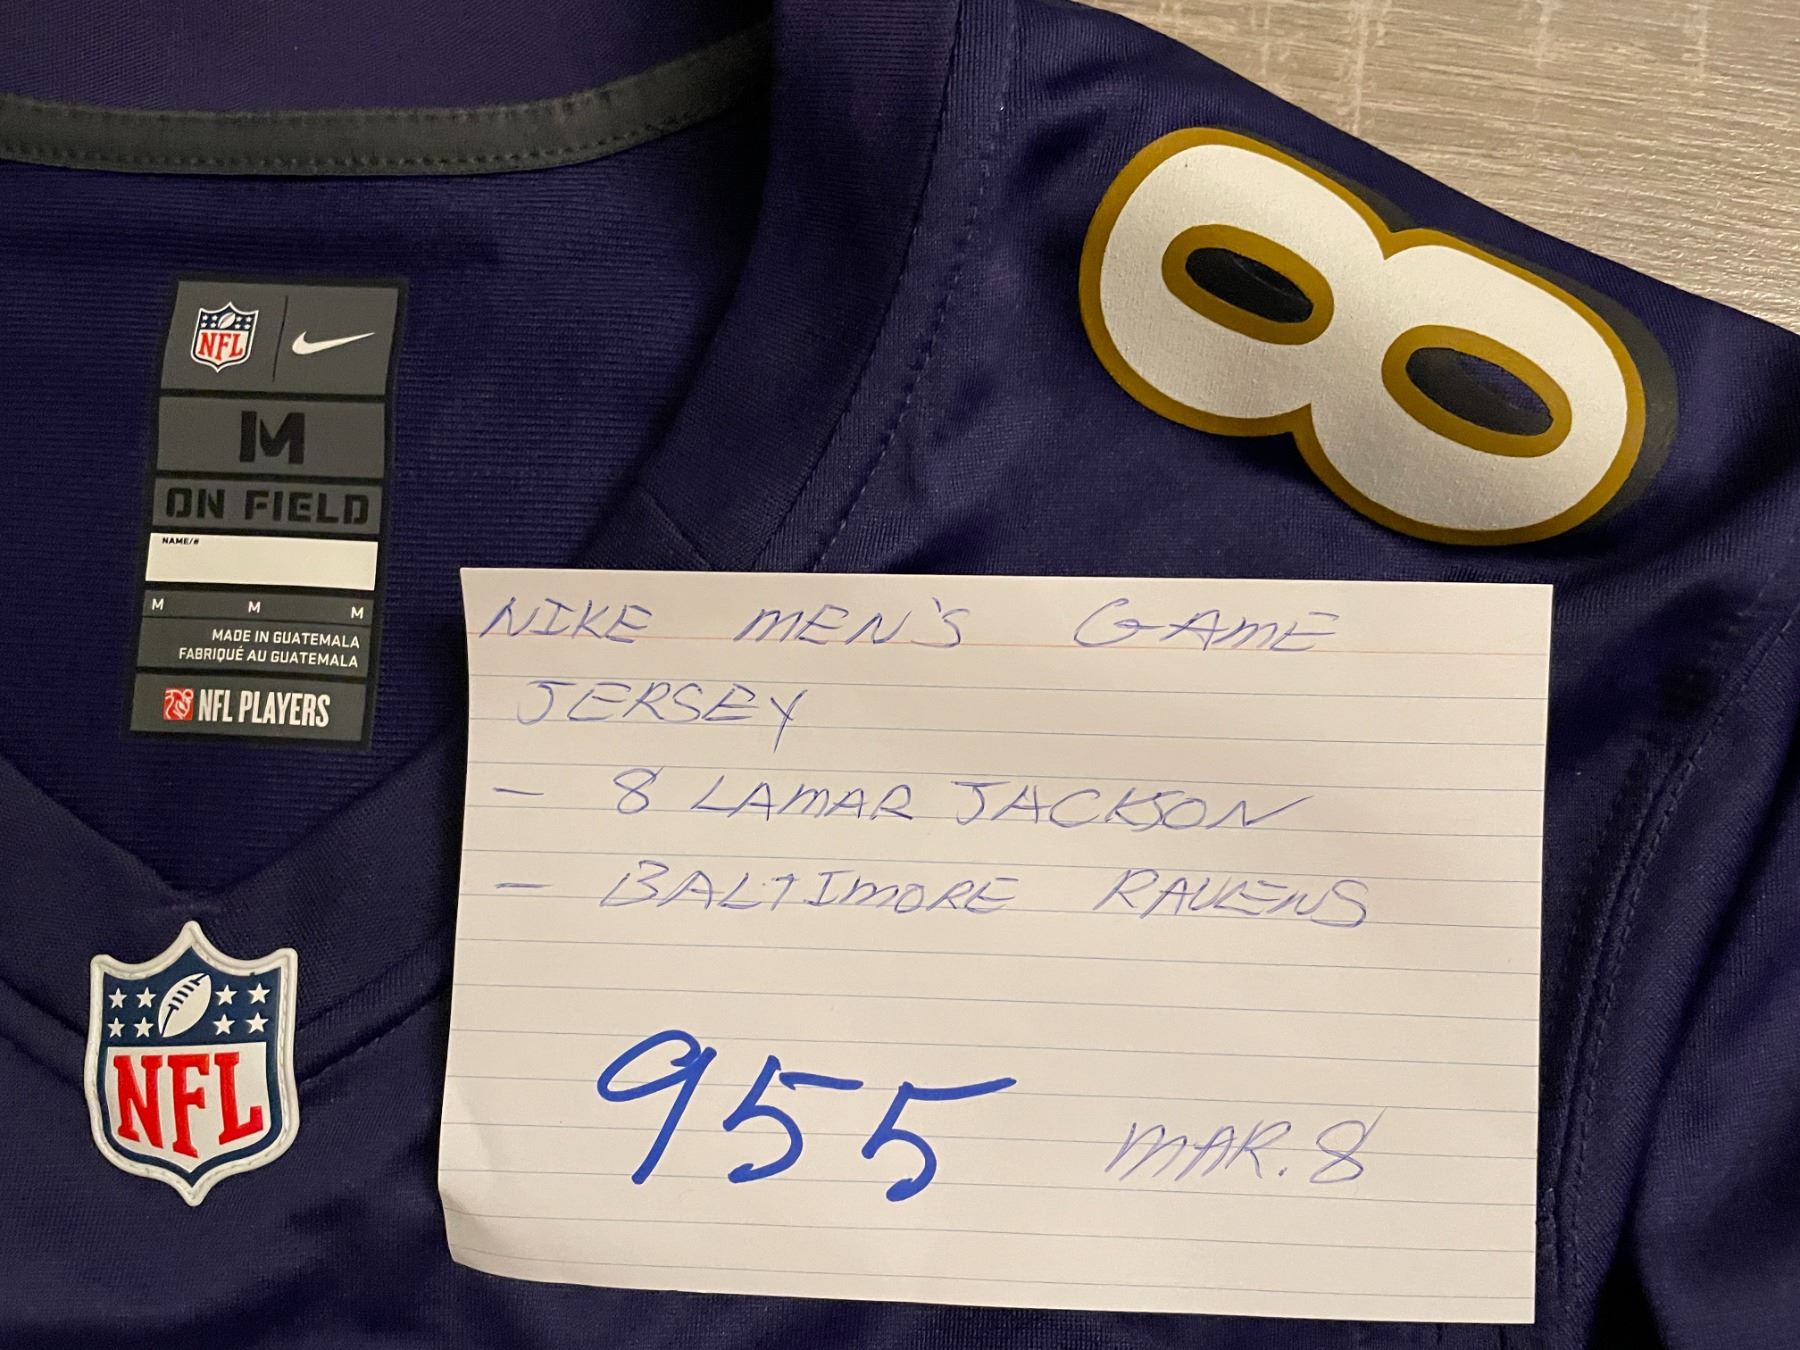 NFL
M
ON FIELD
NAME/#
M M M
MADE IN GUATEMALA
FABRIQUÉ AU GUATEMALA
NFL PLAYERS
8
NIKE MEN'S GAME
JERSEY
- 8 LAMAR JACKSON
- BALTIMORE RAVENS
955 MAR. 8
NFL